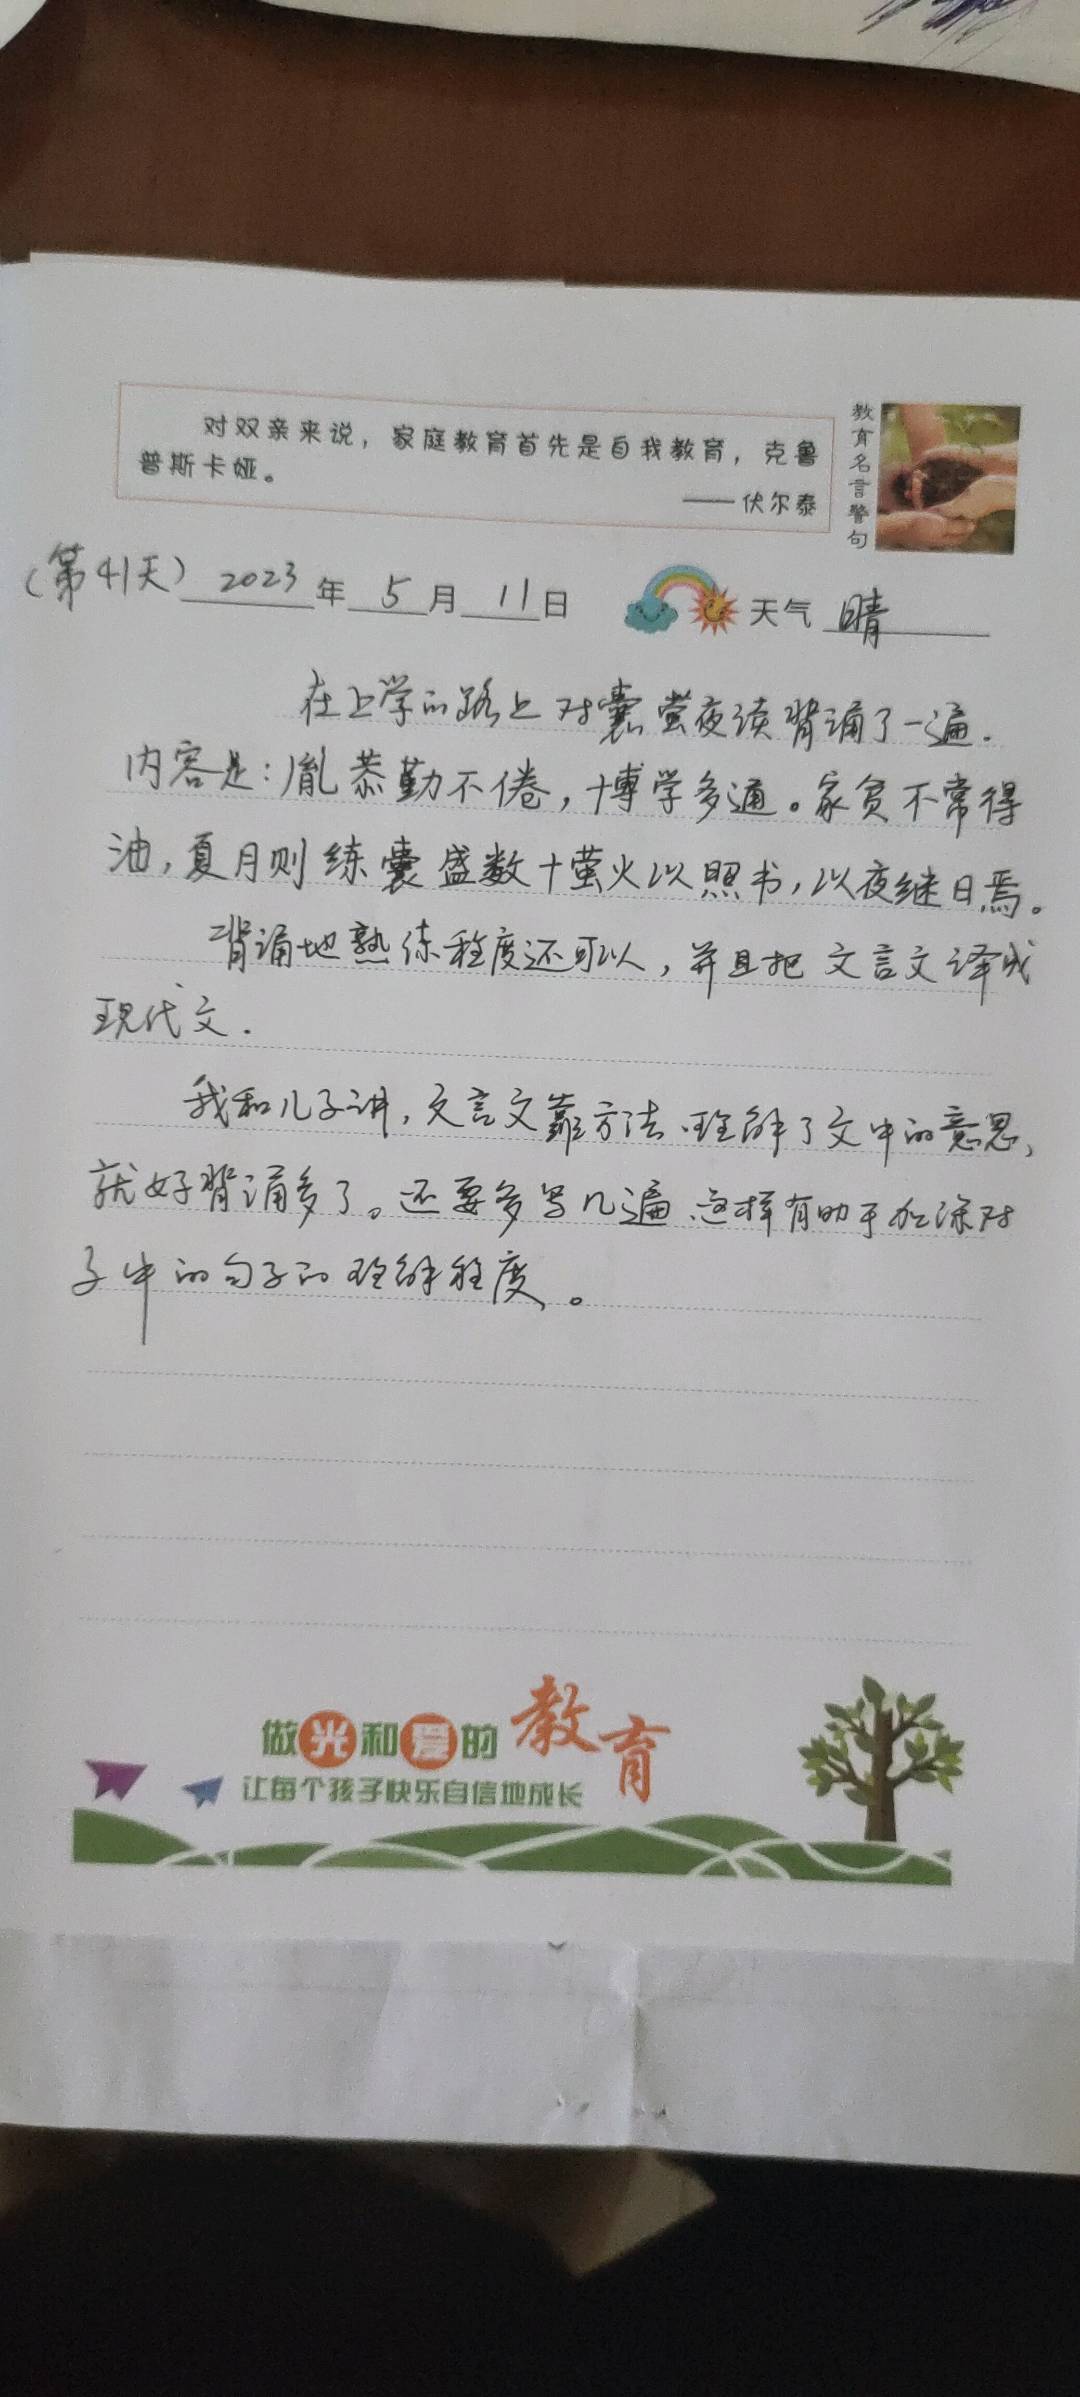 对双亲来说，家庭教育首先是自我教育，克鲁
普斯卡娅。
——伏尔泰
教育名言警句
（第41天） 2023年 5月 11日 天气 晴
在上学的路上对囊萤夜读背诵了一遍.
内容是：胤恭勤不倦，博学多通。家贫不常得
油，夏月则练囊盛数十萤火以照书，以夜继日焉。
背诵地熟练程度还可以，并且把文言文译成
现代文.
我和儿子讲，文言文靠方法.理解了文中的意思，
就好背诵多了。还要多写几遍.这样有助于加深对
子中的句子的理解程度。
做光和爱的教育
让每个孩子快乐自信地成长